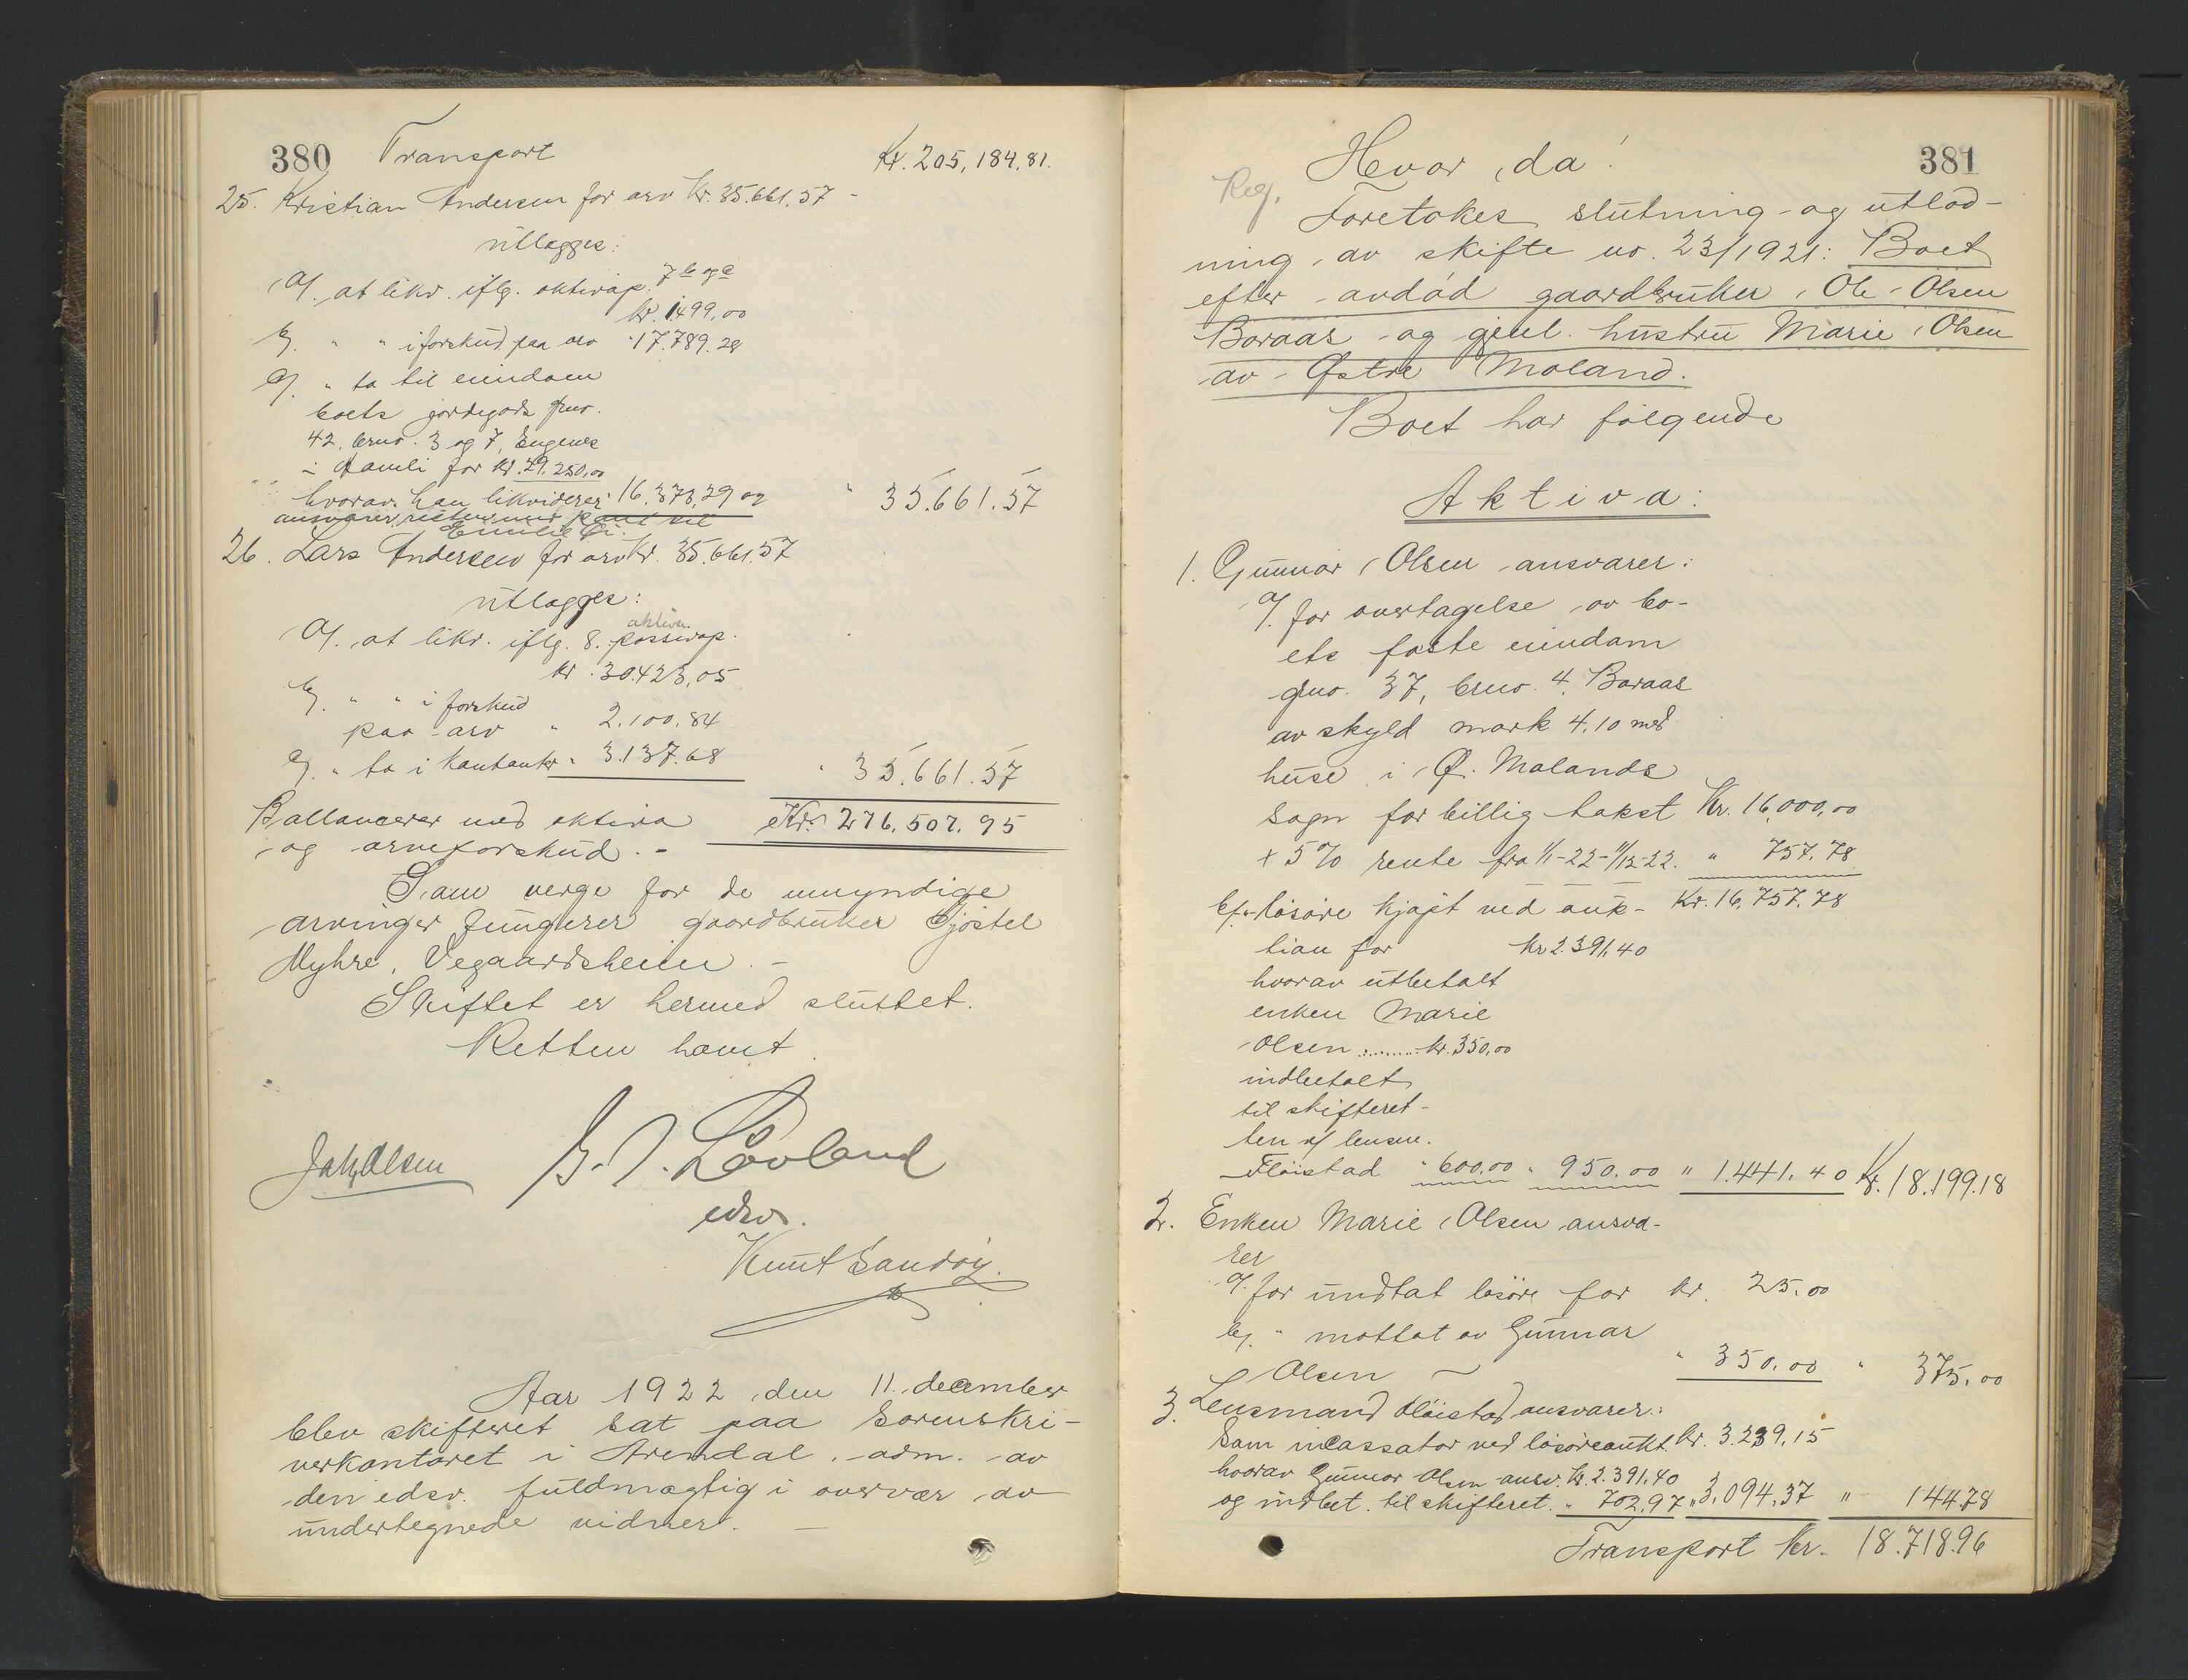 380 Transport Kr. 205,184.81.
25. Kristian Andersen for arv Kr. 35.661.57 -
utlægges:
a/. at likv. iflg. aktivap. 7 b og c
kr. 1499,00
b/. " " i forskud paa arv " 17.789.28
c/. " ta til eiendom
boets jordegods gno.
42, bruno. 3 og 7, Engenes
i Aamli for kr. 29.250,00
hvorav han likviderer " 16.373,29 og " 35.661.57
26. Lars Andersen for arv Kr. 35.661.57
utlægges:
aktiva
a/. at likv. iflg. 8. passivap.
kr. 30.423,05
b/. " " i forskud
paa arv " 2.100.84
c/. " ta i kontanter " 3.137.68 " 35.661.57
Ballancerer med aktiva Kr. 276.507.95
og arveforskud. -
Som verge for de umyndige
arvinger fungerer gaardbruker Gjøstel
Myhre, Vegaardsheien. -
Skiftet er hermed sluttet.
Retten hævet.
Joh. Olsen G. T. Løvland
edsv.
Knut Sandøy.
Aar 1922 den 11. december
blev skifteret sat paa sorenskri-
verkontoret i Arendal. adm. av
den edsv. fuldmægtig i overvær av
undertegnede vidner. -
381
Reg.
Hvor da!
Foretokes slutning- og utlod-
ning av skifte no. 23/1921: Boet
efter avdød gaardbruker Ole Olsen
Boraas og gjenl. hustru Marie Olsen
av Østre Moland.
Boet har følgende
Aktiva:
1. Gunnar Olsen ansvarer:
a/. for overtagelse av bo-
ets faste eiendom
gno. 37, bruno. 4, Boraas
av skyld mark 4,10 med
huse i Ø. Molands
sogn for billig takst Kr. 16,000,00
+ 5% rente fra 1/1-22-11/12-22. " 757.78
Kr. 16,757.78
b/. " løsøre kjøpt ved auk-
tion for kr 2.391,40
hvorav utbetalt
enken Marie
Olsen ......... kr. 350,00
indbetalt
til skifteret-
ten v/ lensm.
Fløistad " 600.00 " 950.00 " 1.441.40 Kr. 18.199.18
2. Enken Marie Olsen ansva-
rer
a/. for undtat løsøre for kr. 25.00
b/. " mottat av Gunnar
Olsen " 350.00 " 375.00
3. Lensmand Fløistad ansvarer:
som incassator ved løsøreaukt. kr. 3.239,15
hvorav Gunnar Olsen ansv. kr. 2.391.40
og indbet. til skifteret. " 702,97 " 3.094.37 " 144.78
Transport kr. 18.718.96